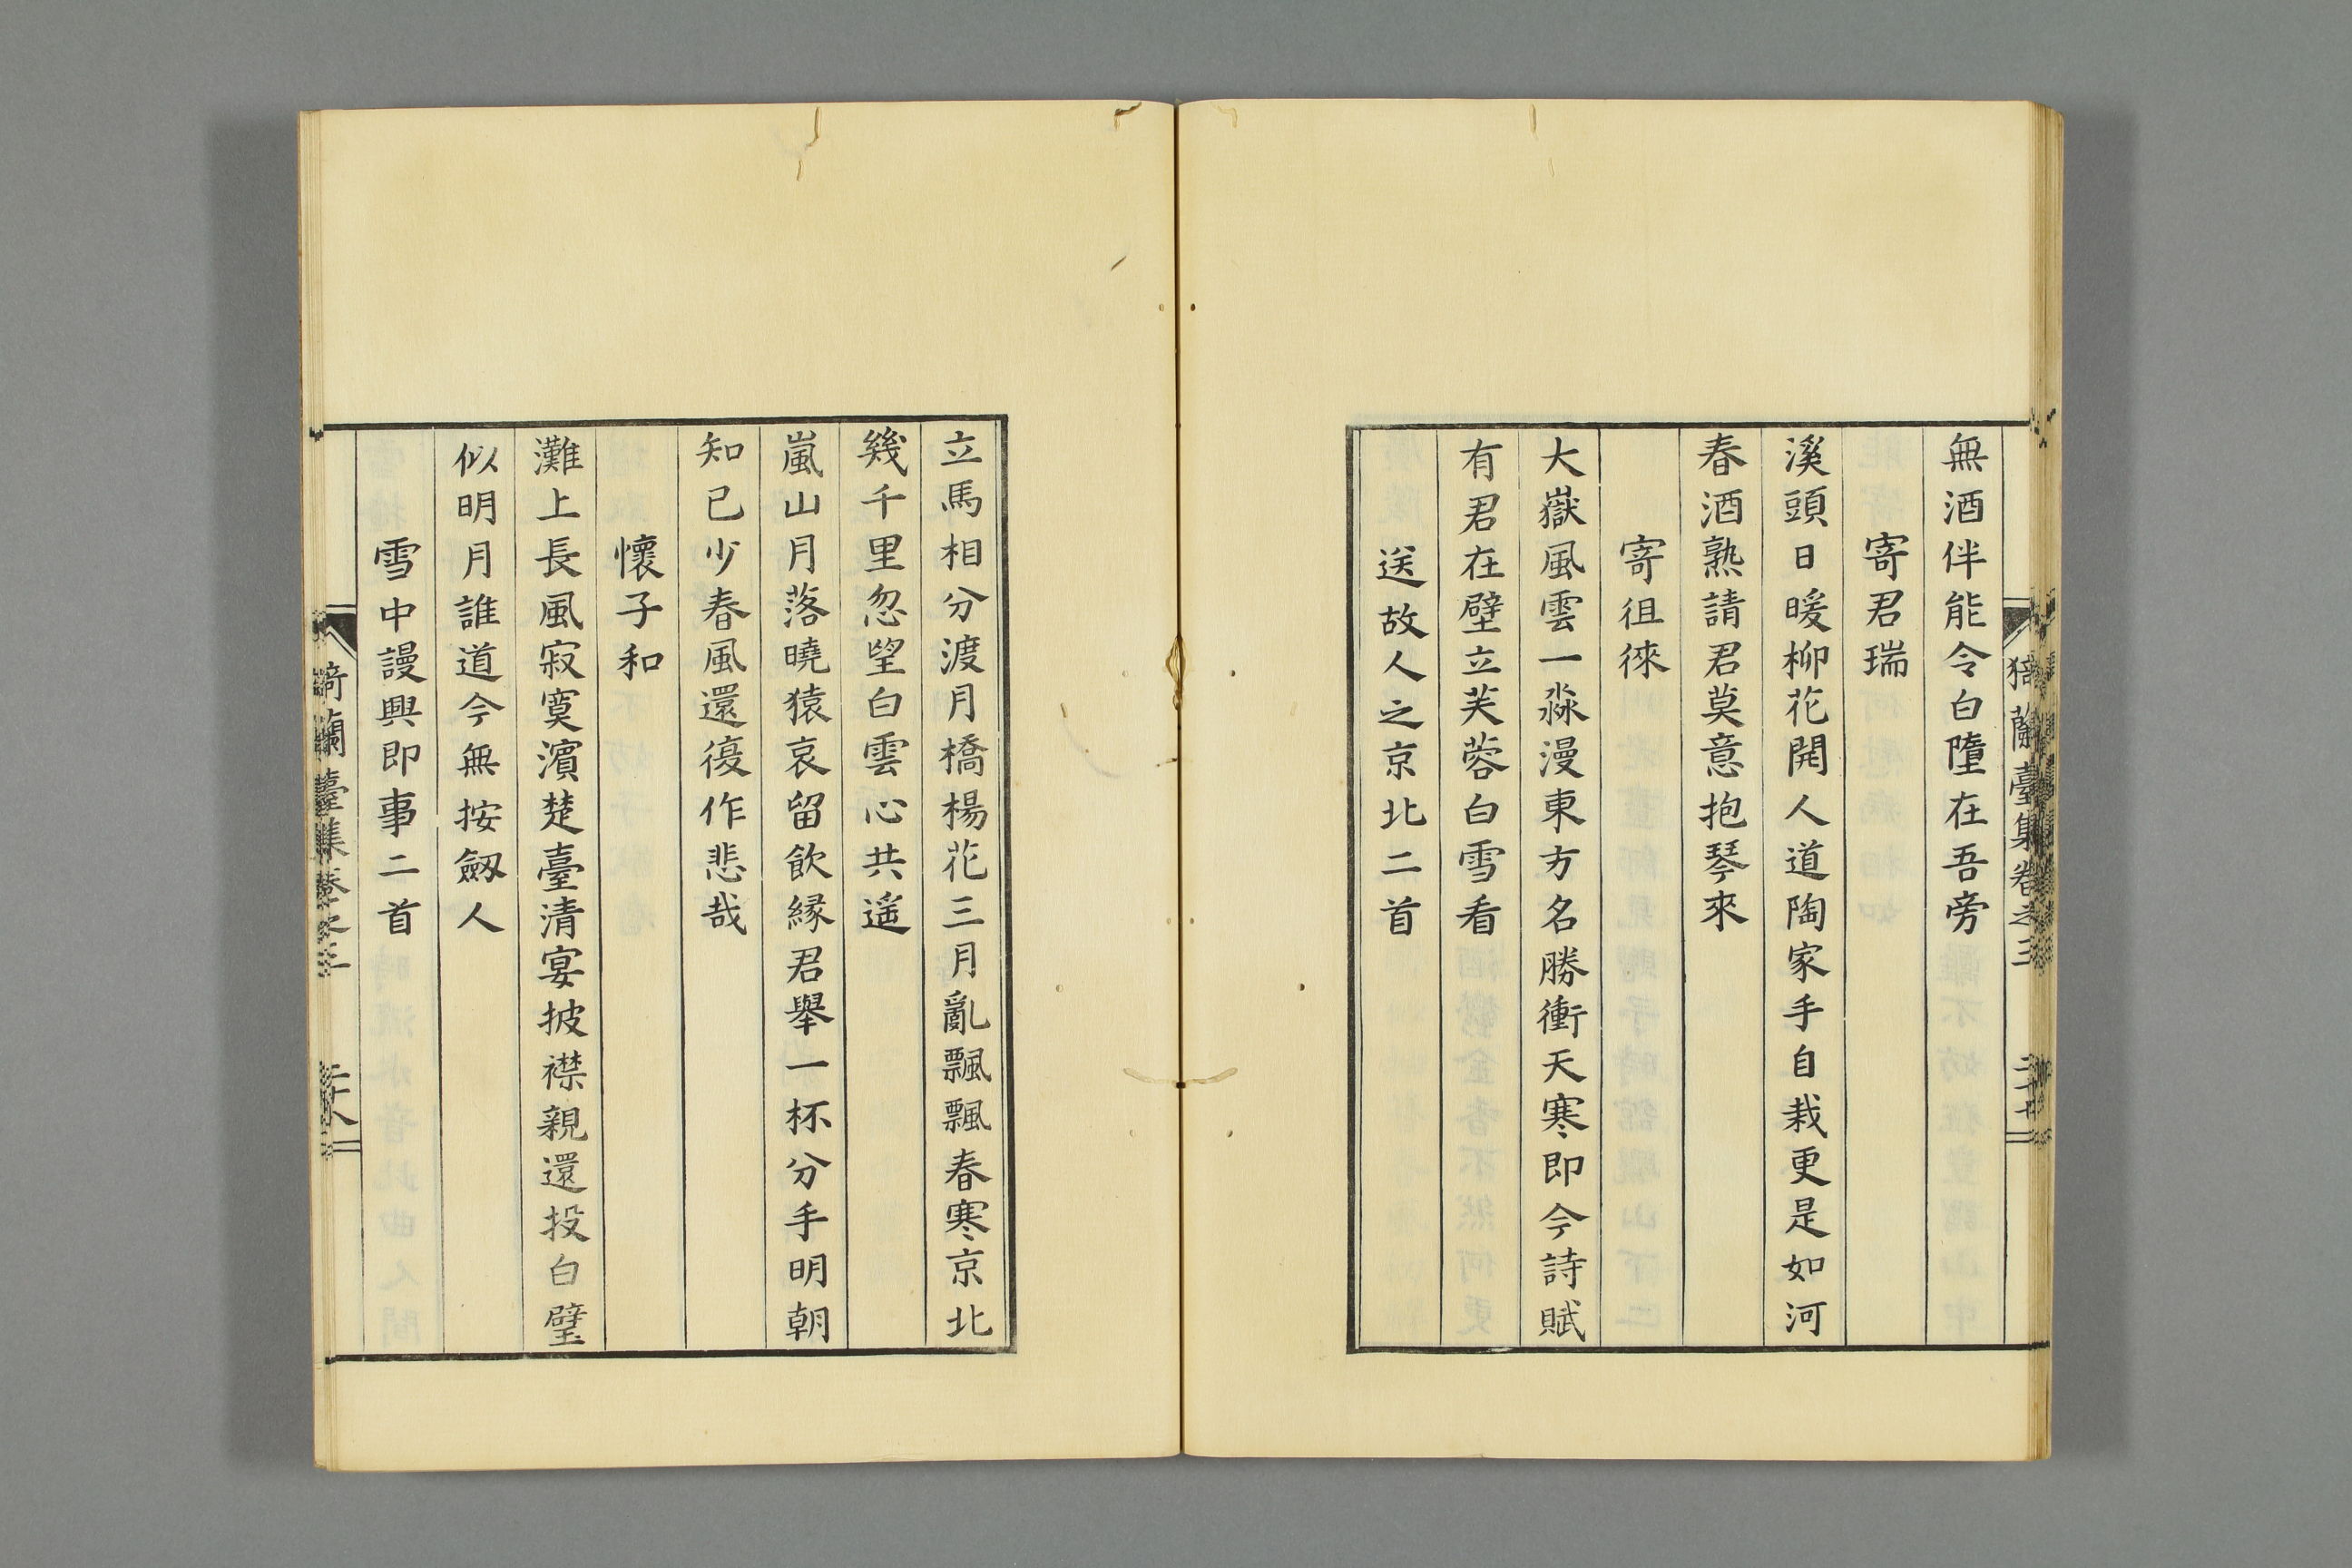 無酒伴能令白墮在吾旁
寄君瑞
溪頭日暖柳花開人道陶家手自栽更是如河
春酒熟請君莫意抱琴來
寄徂徠
大嶽風雲一淼漫東方名勝衝天寒即今詩賦
有君在壁立芙蓉白雪看
送故人之京北二首
立馬相分渡月橋楊花三月亂飄飄春寒京北
幾千里忽望白雲心共遙
嵐山月落曉猿哀留飲緣君舉一杯分手明朝
知已少春風還復作悲哉
懷子和
灘上長風寂寞濱楚臺清宴披襟親還投白璧
似明月誰道今無按劔人
雪中謾興即事二首
猗蘭臺集卷之三
二十七
猗蘭臺集卷之三
二十八